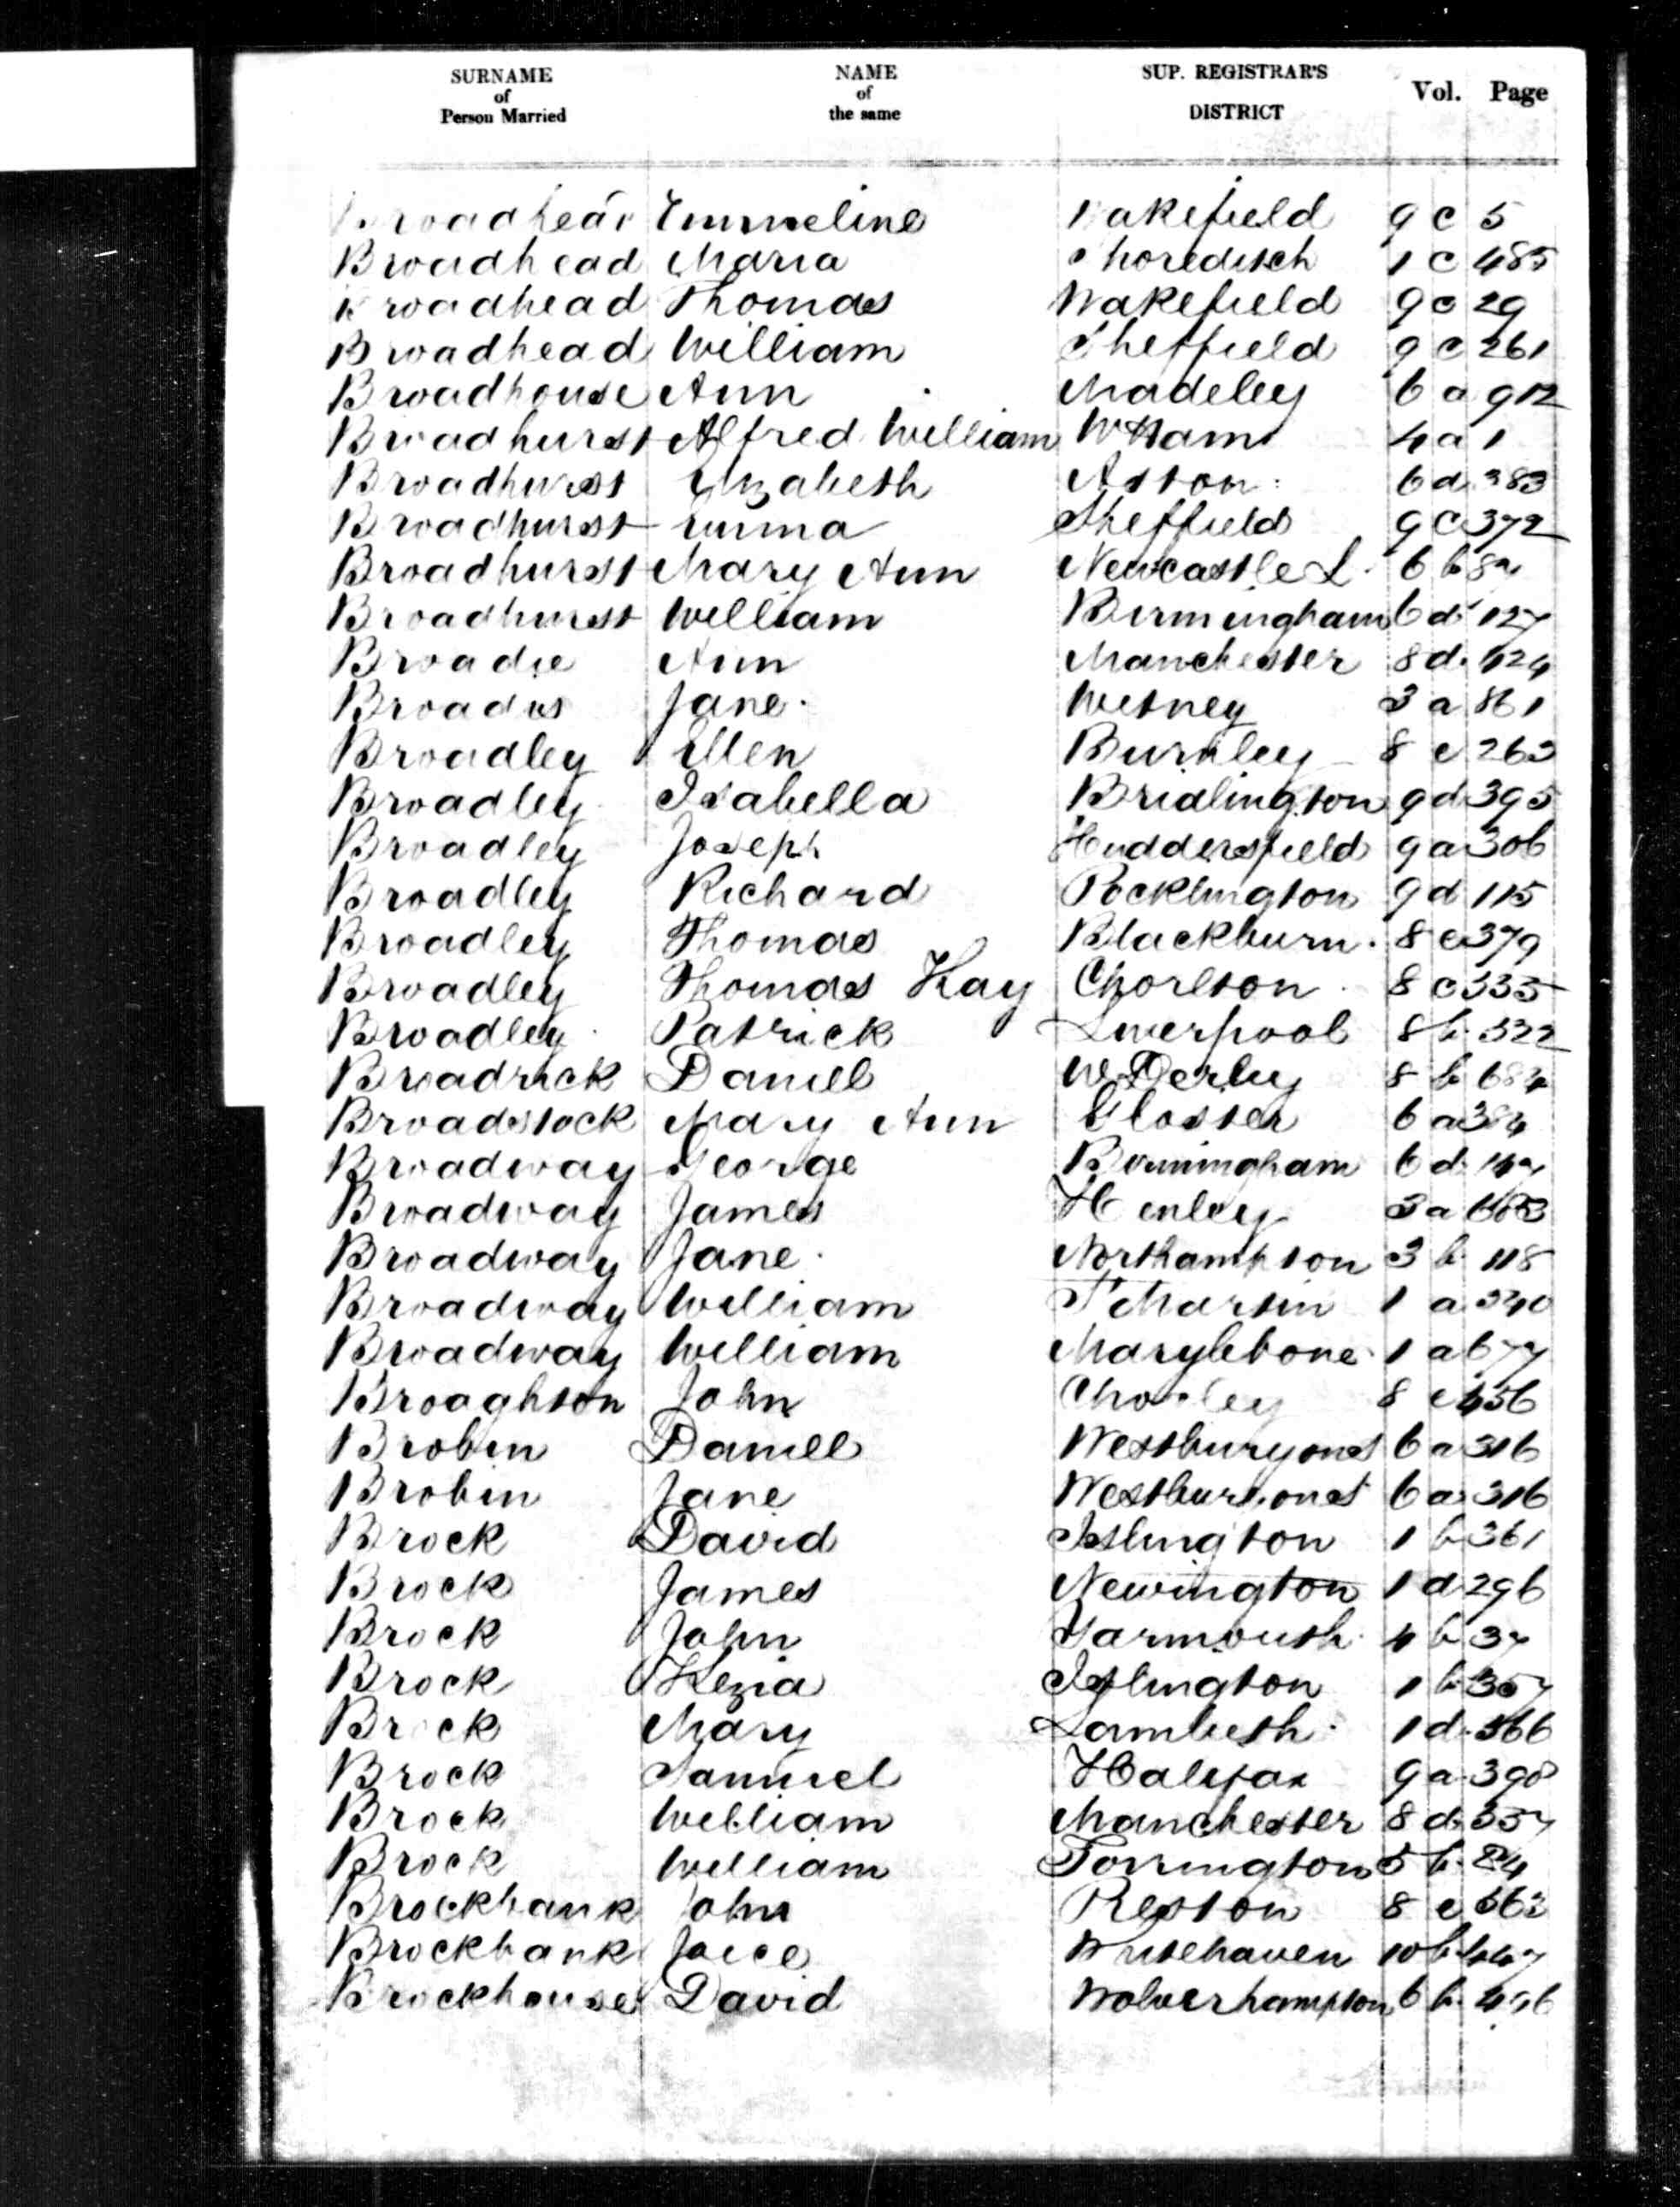 SURNAME of Person Married NAME of the same SUP. REGISTRAR'S DISTRICT Vol. Page
Broadhead Emmeline Wakefield 9 c 5
Broadhead Maria Shoreditch 1 c 485
Broadhead Thomas Wakefield 9 c 29
Broadhead William Sheffield 9 c 261
Broadhouse Ann Madeley 6 a 912
Broadhurst Alfred William W Ham 4 a 1
Broadhurst Elizabeth Aston 6 d 383
Broadhurst Emma Sheffield 9 c 372
Broadhurst Mary Ann Newcastle L. 6 b
Broadhurst William Birmingham 6 d 127
Broadie Ann Manchester 8 d 424
Broadis Jane Witney 3 a 861
Broadley Ellen Burnley 8 e 263
Broadley Isabella Bridlington 9 d 395
Broadley Joseph Huddersfield 9 a 306
Broadley Richard Pocklington 9 d 115
Broadley Thomas Blackburn 8 e 379
Broadley Thomas Kay Chorlton 8 c 335
Broadley Patrick Liverpool 8 b 322
Broadrick Daniel W. Derby 8 b 684
Broadstock Mary Ann Gloster 6 a 384
Broadway George Birmingham 6 d
Broadway James Henley 3 a
Broadway Jane Northampton 3 b 118
Broadway William St Martin 1 a 340
Broadway William Marylebone 1 a 677
Broaghton John Chorley 8 e 456
Brobin Daniel Westbury on S 6 a 316
Brobin Jane Westbury on S 6 a 316
Brock David Islington 1 b 361
Brock James Newington 1 d 296
Brock John Yarmouth 4 b 37
Brock Kezia Islington 1 b 357
Brock Mary Lambeth 1 d 366
Brock Samuel Halifax 9 a 398
Brock William Manchester 8 d 337
Brock William Torrington 5 b
Brockbank John Preston 8 e 563
Brockbank Joice Whitehaven 10 b 447
Brockhouse David Wolverhampton 6 b